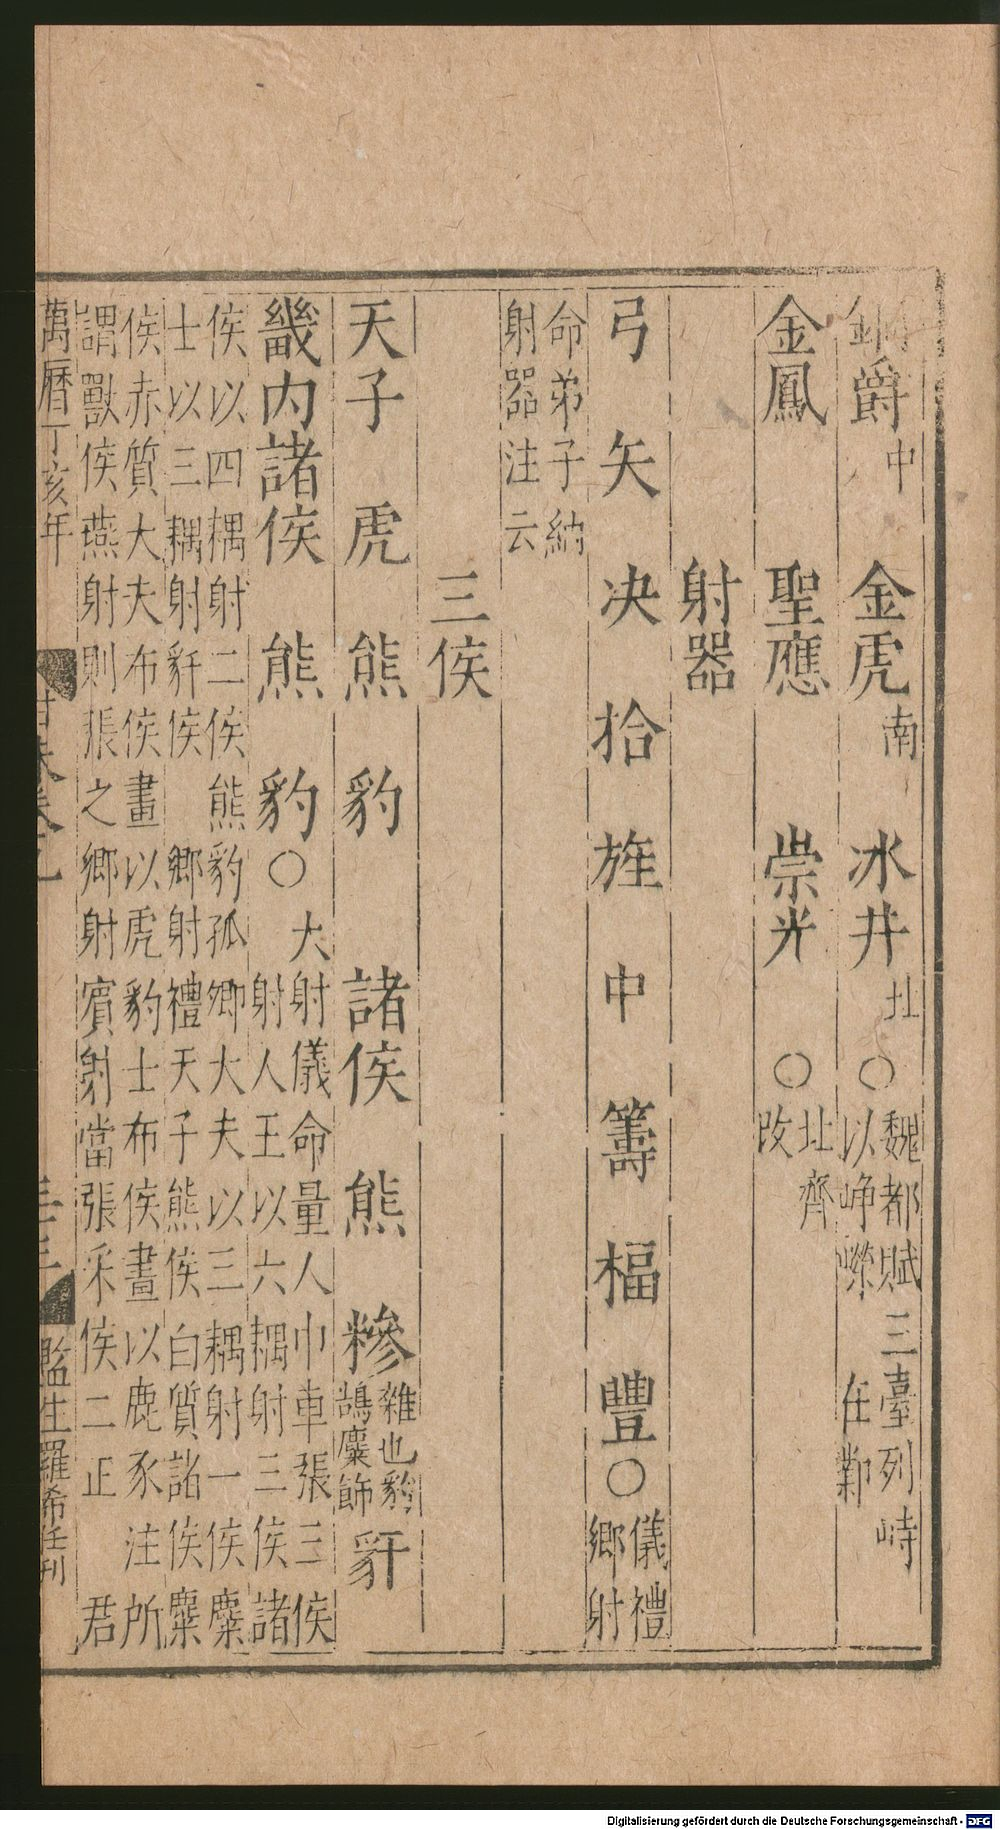 銅爵中 金虎南 冰井北○魏都賦三臺列峙
以崢嶸 在鄴
金鳳 聖應 崇光 ○北齊
改
射器
弓 矢 决 拾 旌 中 籌 楅 豐○儀禮
鄉射
命弟子納
射器注云
三侯
天子 虎 熊 豹 諸侯 熊 糝雜也豹鵠麋飾豻
畿内諸侯 熊 豹○大射儀命量人巾車張三侯
射人王以六耦射三侯諸
侯以四耦射二侯熊豹孤卿大夫以三耦射一侯麋
士以三耦射豻侯 鄉射禮天子熊侯白質諸侯麋
侯赤質大夫布侯畫以虎豹士布侯畫以鹿豕注所
謂獸侯燕射則張之鄉射賓射當張采侯二正 君
萬曆丁亥年 卷九 監生羅希任刊
Digitalisierung gefördert durch die Deutsche Forschungsgemeinschaft - DFG